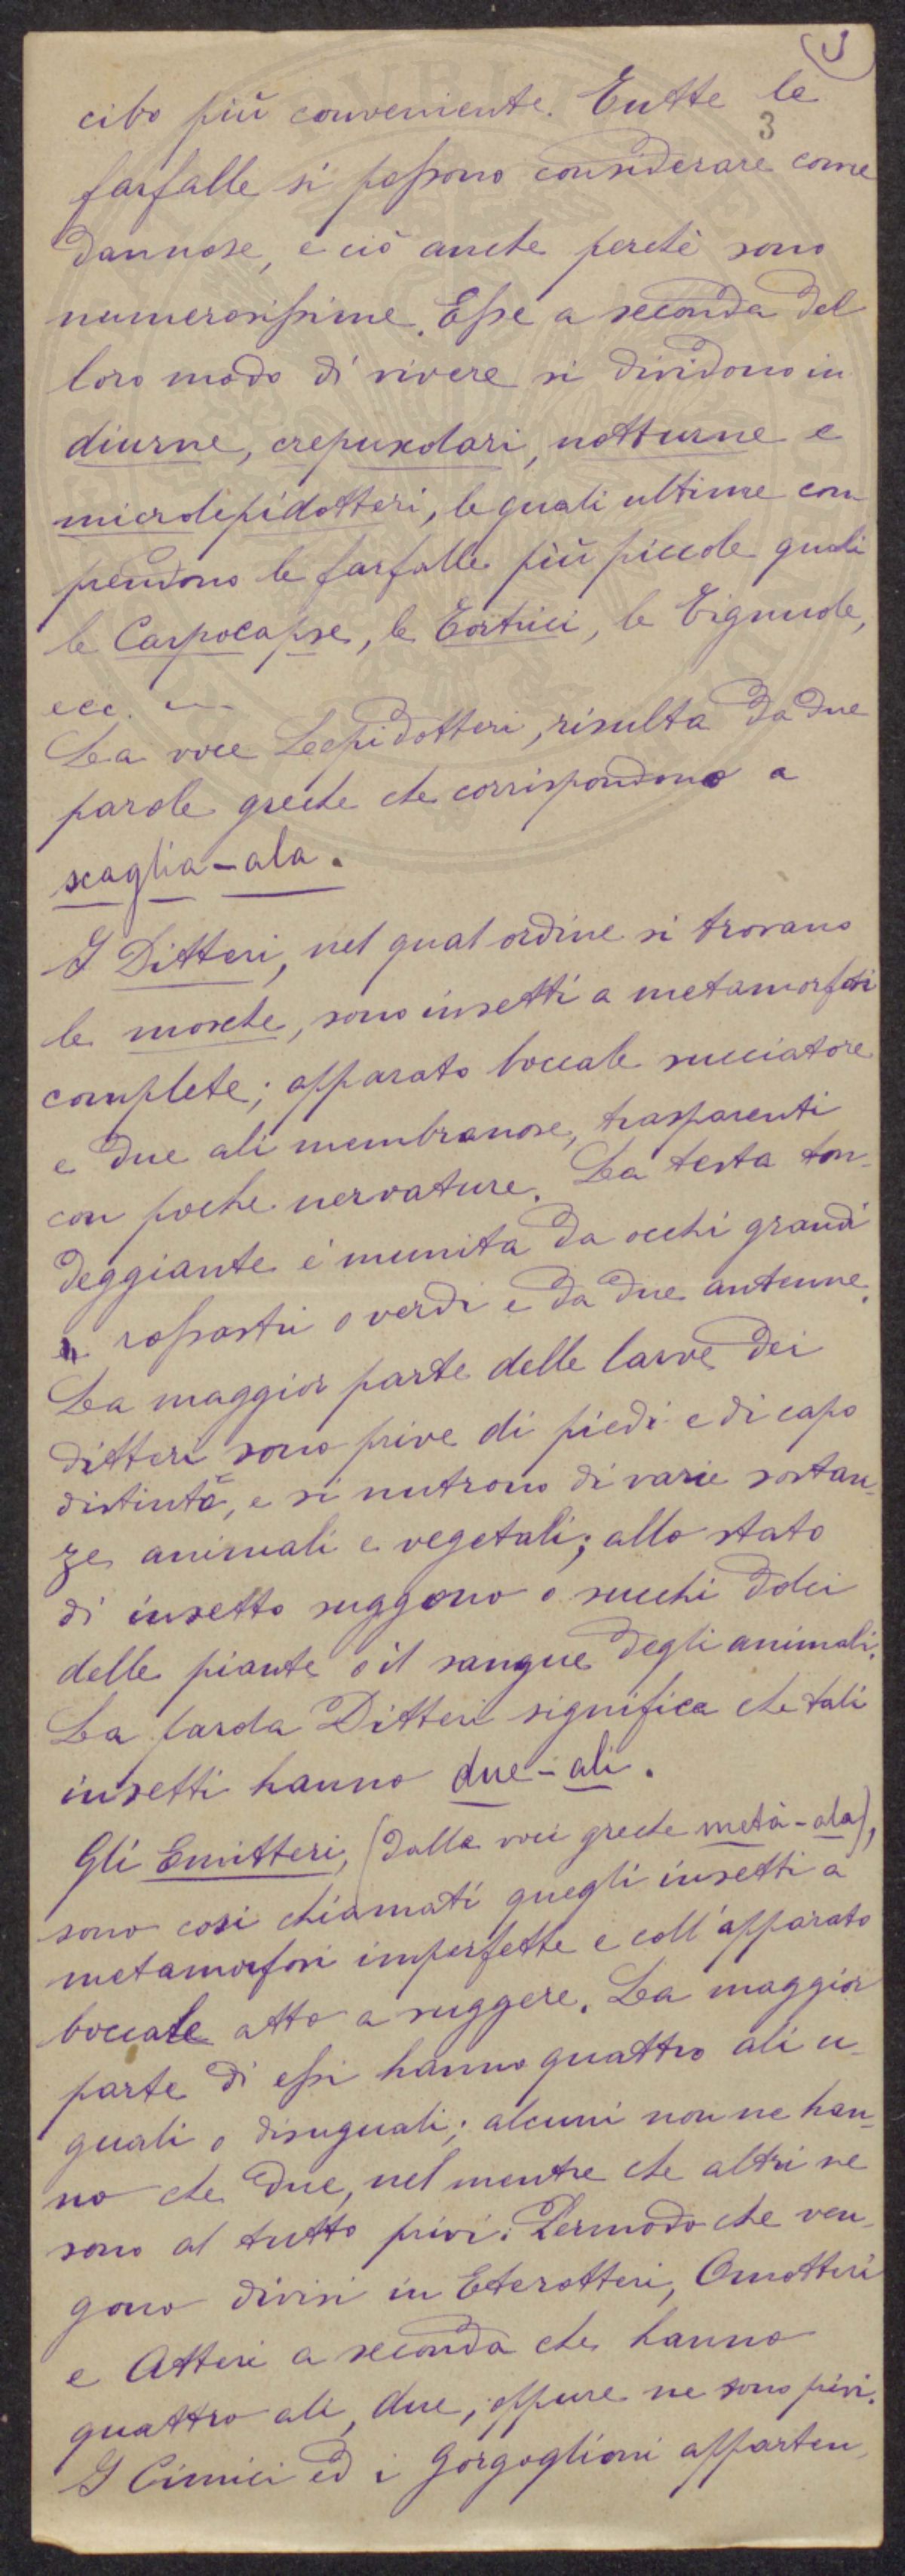 3
cibo più conveniente. Tutte le
farfalle si possono considerare come
dannose, e ciò anche perchè sono
numerosissime. Esse a seconda del
loro modo di vivere si dividono in
diurne, crepuscolari, notturne e
microlepidotteri, le quali ultime com
prendono le farfalle più piccole quali
le Carpocapse, le Tortrici, le Tignuole,
ecc.
La voce Lepidotteri, risulta da due
parole greche che corrispondono a
scaglia-ala.
I Ditteri, nel qual ordine si trovano
le mosche, sono insetti a metamorfosi
complete; apparato boccale succiatore
e due ali membranose, trasparenti
con poche nervature. La testa ton-
deggiante è munita da occhi grandi
rossastri o verdi e da due antenne.
La maggior parte delle larve dei
ditteri sono prive di piedi e di capo
distinto, e si nutrono di varie sostan-
ze animali e vegetali; allo stato
di insetto suggono o succhi dolci
delle piante o il sangue degli animali.
La parola Ditteri significa che tali
insetti hanno due-ali.
Gli Emitteri, (dalle voci greche metà-ala),
sono così chiamati quegli insetti a
metamorfosi imperfette e coll'apparato
boccale atto a suggere. La maggior
parte di essi hanno quattro ali u-
guali o disuguali; alcuni non ne han-
no che due, nel mentre che altri ne
sono al tutto privi. Permodo che ven-
gono divisi in Eterotteri, Omotteri
e Atteri a seconda che hanno
quattro ali, due, oppure ne sono privi.
I Cimici ed i Gorgoglioni apparten